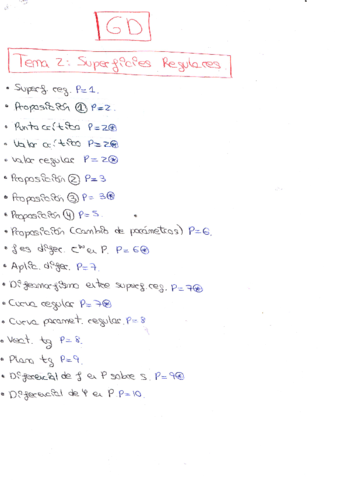 GD
Tema 2: Superficies Regulares
• Superf reg. P=1.
• Proposición ① P=2.
• Punto crítico P=2⊛
• Valor crítico P=2⊛
• Valor regular P=2⊛
• Proposición ② P=3
• Proposición ③ P=3⊛
• Proposición ④ P=5.
• Proposición (Cambio de parámetros) P=6.
• f es difer. C^∞ en P. P=6⊛
• Aplic. difer. P=7.
• Difeomorfismo entre superf reg. P=7⊛
• Curva regular P=7⊛
• Curva paramet. regular. P=8
• Vect. tg P=8.
• Plano tg P=9.
• Diferencial de f en P sobre S. P=9⊛
• Diferencial de φ en P P=10.